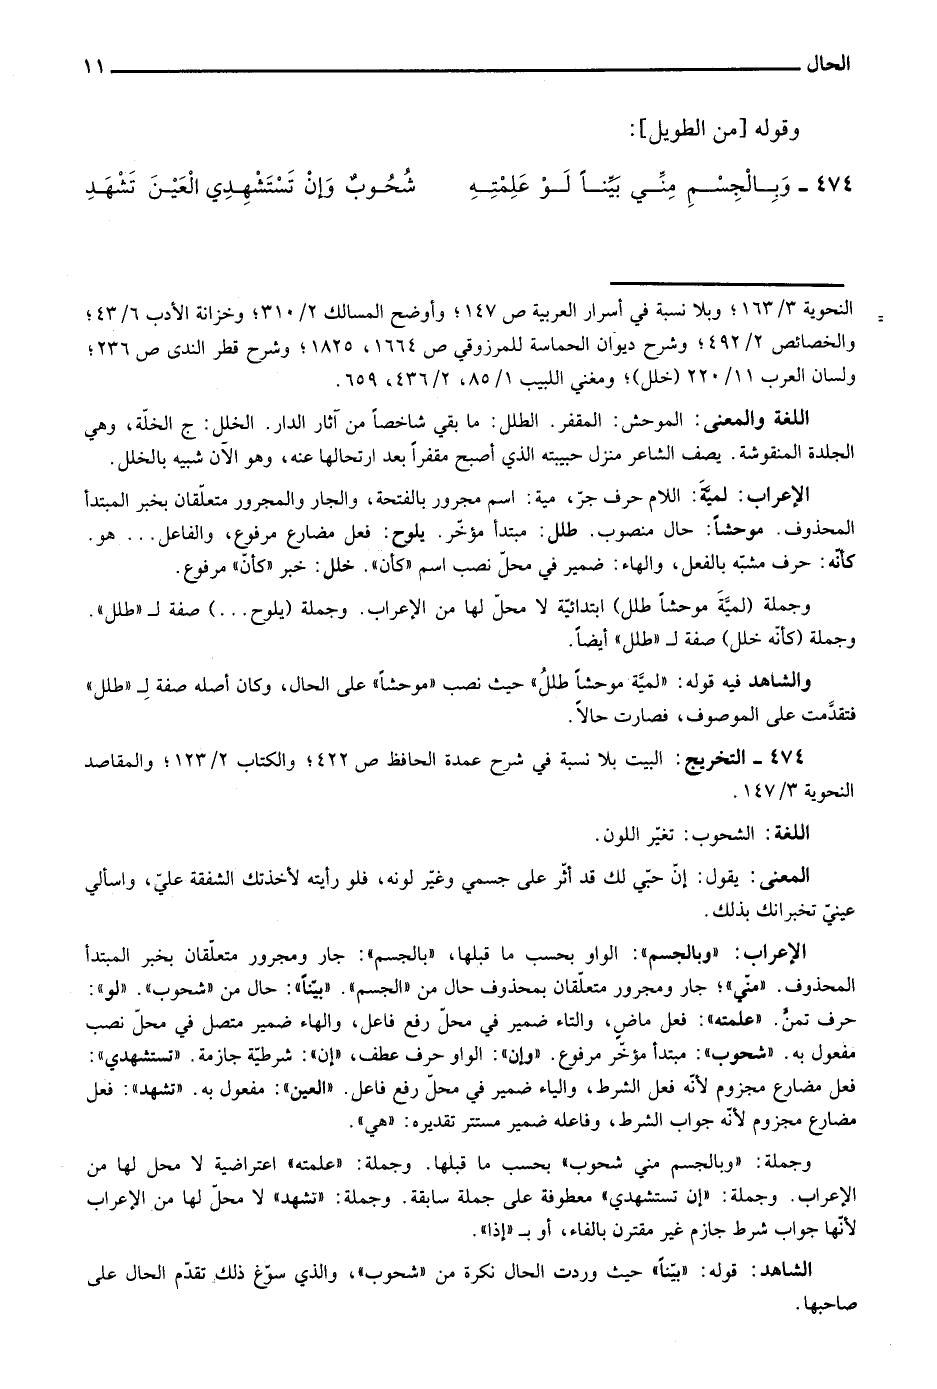 الحال ١١
وقوله [من الطويل]:
٤٧٤ ـ وَبِـالْجِسْـمِ مِنِّـي بَيِّنـاً لَـوْ عَلِمْتِـهِ شُحُوبٌ وَإِنْ تَسْتَشْهِدِي الْعَيْـنَ تَشْهَـدِ
النحوية ٣/ ١٦٣؛ وبلا نسبة في أسرار العربية ص ١٤٧؛ وأوضح المسالك ٢/ ٣١٠؛ وخزانة الأدب ٦/ ٤٣؛
والخصائص ٢/ ٤٩٢؛ وشرح ديوان الحماسة للمرزوقي ص ١٦٦٤، ١٨٢٥؛ وشرح قطر الندى ص ٢٣٦؛
ولسان العرب ١١/ ٢٢٠ (خلل)؛ ومغني اللبيب ١/ ٨٥، ٢/ ٤٣٦، ٦٥٩.
اللغة والمعنى: الموحش: المقفر. الطلل: ما بقي شاخصاً من آثار الدار. الخلل: ج الخلّة، وهي
الجلدة المنقوشة. يصف الشاعر منزل حبيبته الذي أصبح مقفراً بعد ارتحالها عنه، وهو الآن شبيه بالخلل.
الإعراب: لميَّةَ: اللام حرف جرّ، مية: اسم مجرور بالفتحة، والجار والمجرور متعلّقان بخبر المبتدأ
المحذوف. موحشاً: حال منصوب. طلل: مبتدأ مؤخّر. يلوح: فعل مضارع مرفوع، والفاعل... هو.
كأنّه: حرف مشبّه بالفعل، والهاء: ضمير في محلّ نصب اسم «كأن». خلل: خبر «كأنّ» مرفوع.
وجملة (لميَّةَ موحشاً طلل) ابتدائيّة لا محلّ لها من الإعراب. وجملة (يلوح...) صفة لـ «طلل».
وجملة (كأنّه خلل) صفة لـ «طلل» أيضاً.
والشاهد فيه قوله: «لميَّة موحشاً طللُ» حيث نصب «موحشاً» على الحال، وكان أصله صفة لِـ «طلل»
فتقدَّمت على الموصوف، فصارت حالاً.
٤٧٤ ـ التخريج: البيت بلا نسبة في شرح عمدة الحافظ ص ٤٢٢؛ والكتاب ٢/ ١٢٣؛ والمقاصد
النحوية ٣/ ١٤٧.
اللغة: الشحوب: تغيّر اللون.
المعنى: يقول: إنّ حبّي لك قد أثّر على جسمي وغيّر لونه، فلو رأيته لأخذتك الشفقة عليّ، واسألي
عينيّ تخبرانك بذلك.
الإعراب: «وبالجسم»: الواو بحسب ما قبلها، «بالجسم»: جار ومجرور متعلّقان بخبر المبتدأ
المحذوف. «منّي»؛ جار ومجرور متعلّقان بمحذوف حال من «الجسم». «بيّناً»: حال من «شحوب». «لو»:
حرف تمنٍّ. «علمته»: فعل ماضٍ، والتاء ضمير في محلّ رفع فاعل، والهاء ضمير متصل في محلّ نصب
مفعول به. «شحوب»: مبتدأ مؤخّر مرفوع. «وإن»: الواو حرف عطف، «إن»: شرطيّة جازمة. «تستشهدي»:
فعل مضارع مجزوم لأنّه فعل الشرط، والياء ضمير في محلّ رفع فاعل. «العين»: مفعول به. «تشهد»: فعل
مضارع مجزوم لأنّه جواب الشرط، وفاعله ضمير مستتر تقديره: «هي».
وجملة: «وبالجسم مني شحوب» بحسب ما قبلها. وجملة: «علمته» اعتراضية لا محل لها من
الإعراب. وجملة: «إن تستشهدي» معطوفة على جملة سابقة. وجملة: «تشهد» لا محلّ لها من الإعراب
لأنّها جواب شرط جازم غير مقترن بالفاء، أو بـ «إذا».
الشاهد: قوله: «بيّناً» حيث وردت الحال نكرة من «شحوب»، والذي سوّغ ذلك تقدّم الحال على
صاحبها.